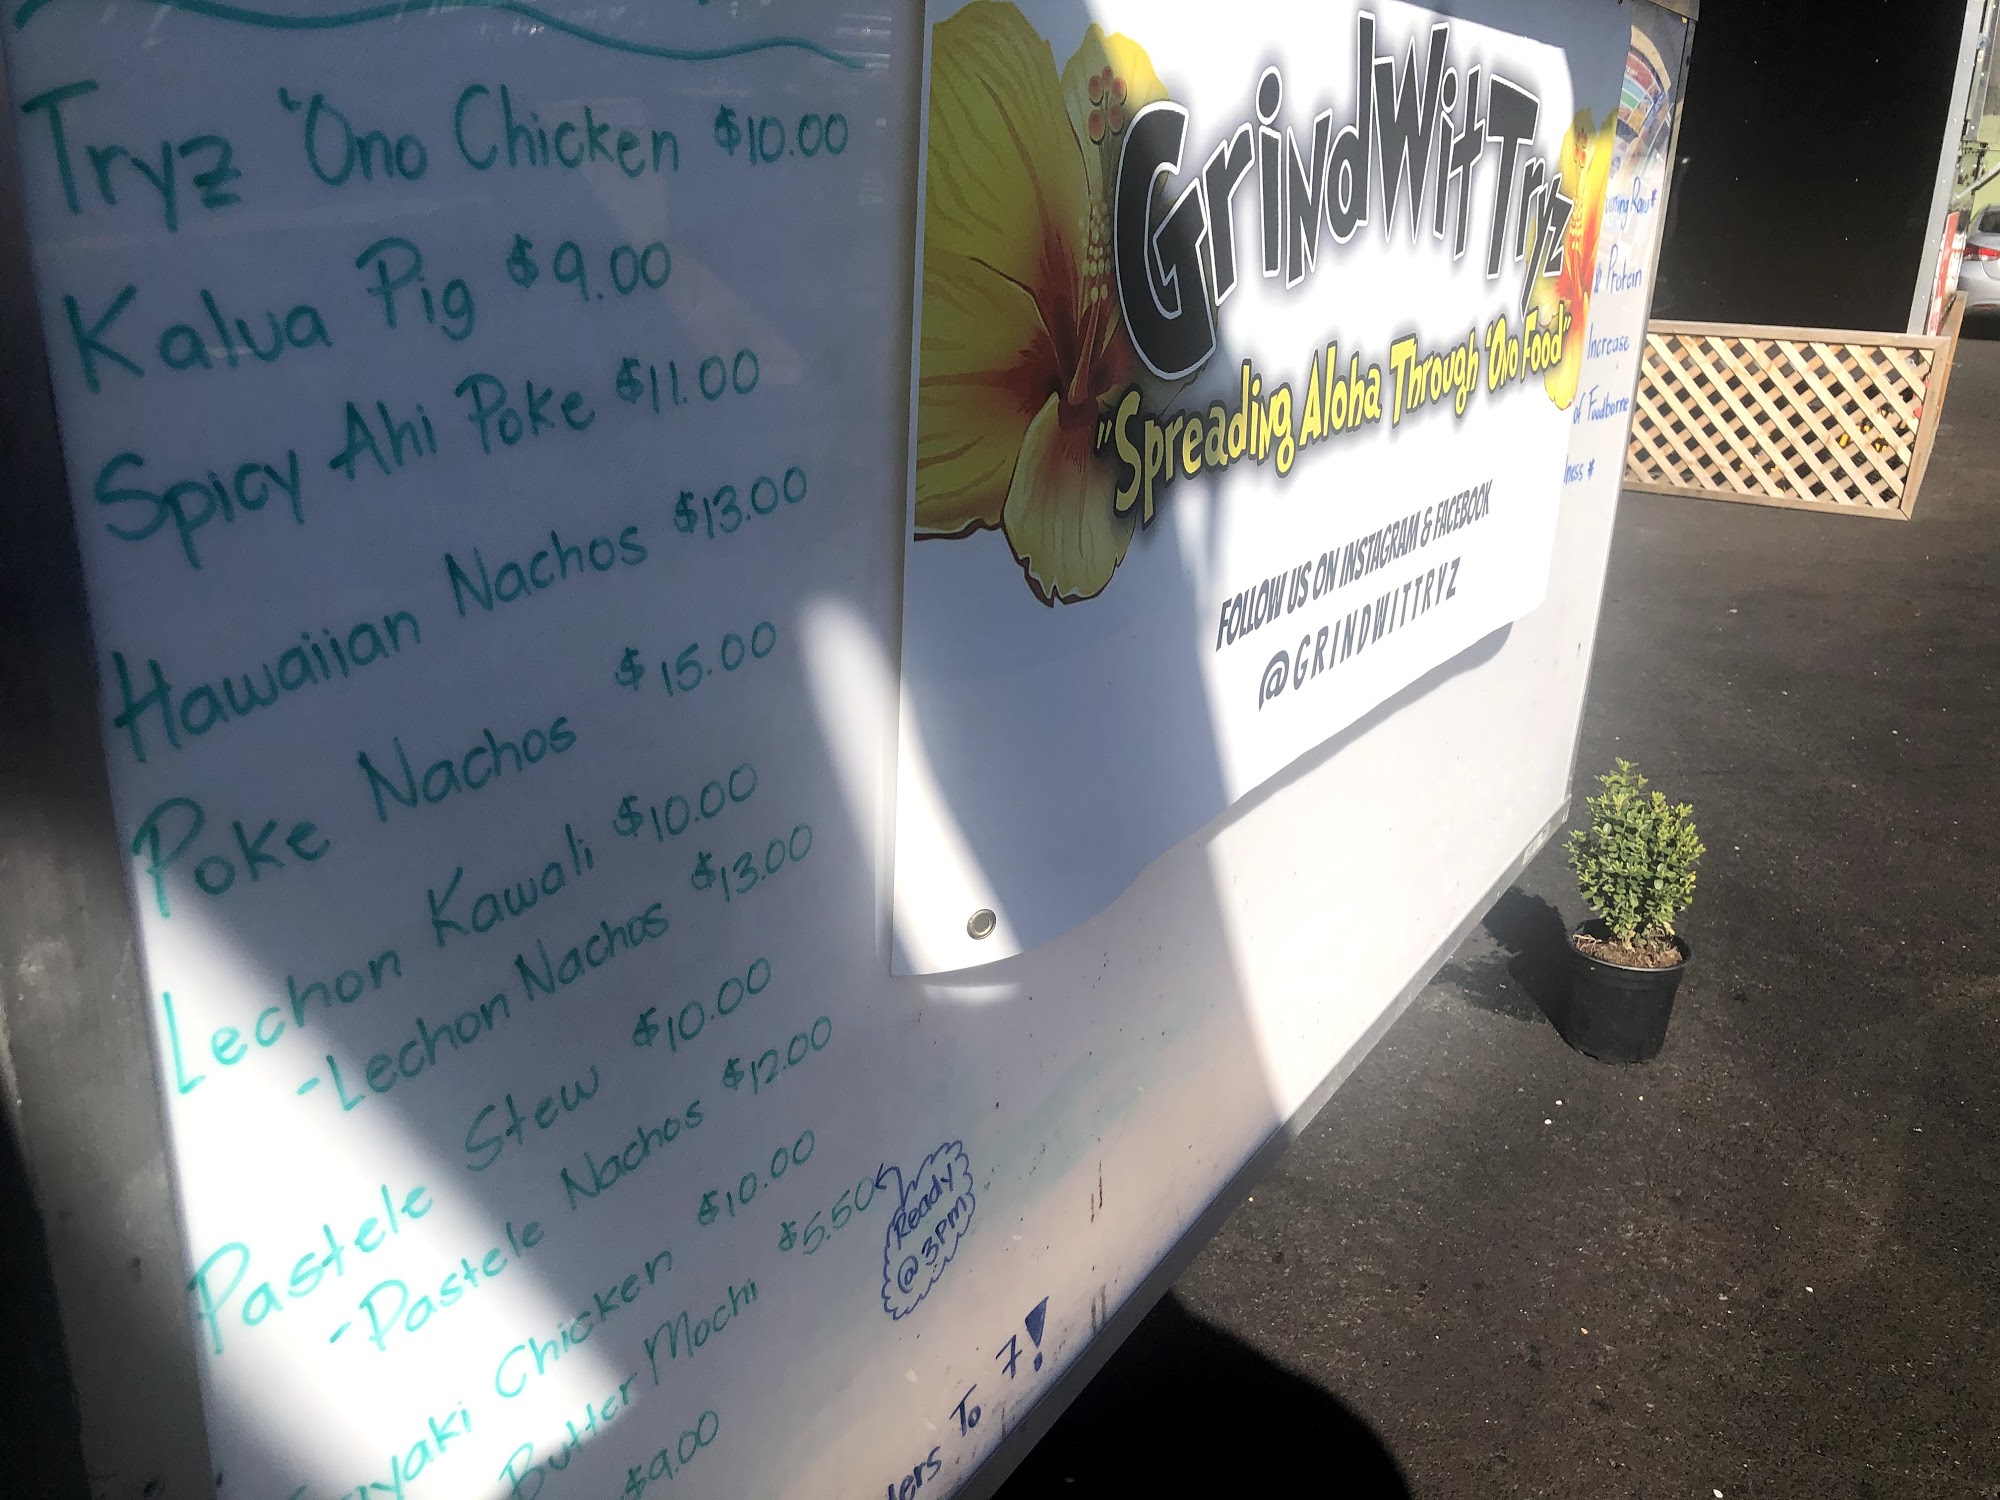 Tryz 'Ono Chicken $10.00
Kalua Pig $9.00
Spicy Ahi Poke $11.00
Hawaiian Nachos $13.00
Poke Nachos $15.00
Lechon Kawali $10.00
-Lechon Nachos $13.00
Pastele Stew $10.00
-Pastele Nachos $12.00
Chicken $10.00
Butter Mochi $5.50
Ready
@ 3PM
$9.00
To 7!
GrindWitTryz
"Spreading Aloha Through 'Ono Food"
FOLLOW US ON INSTAGRAM & FACEBOOK
@GRINDWITTRYZ
Protein
Increase
of Foodborne